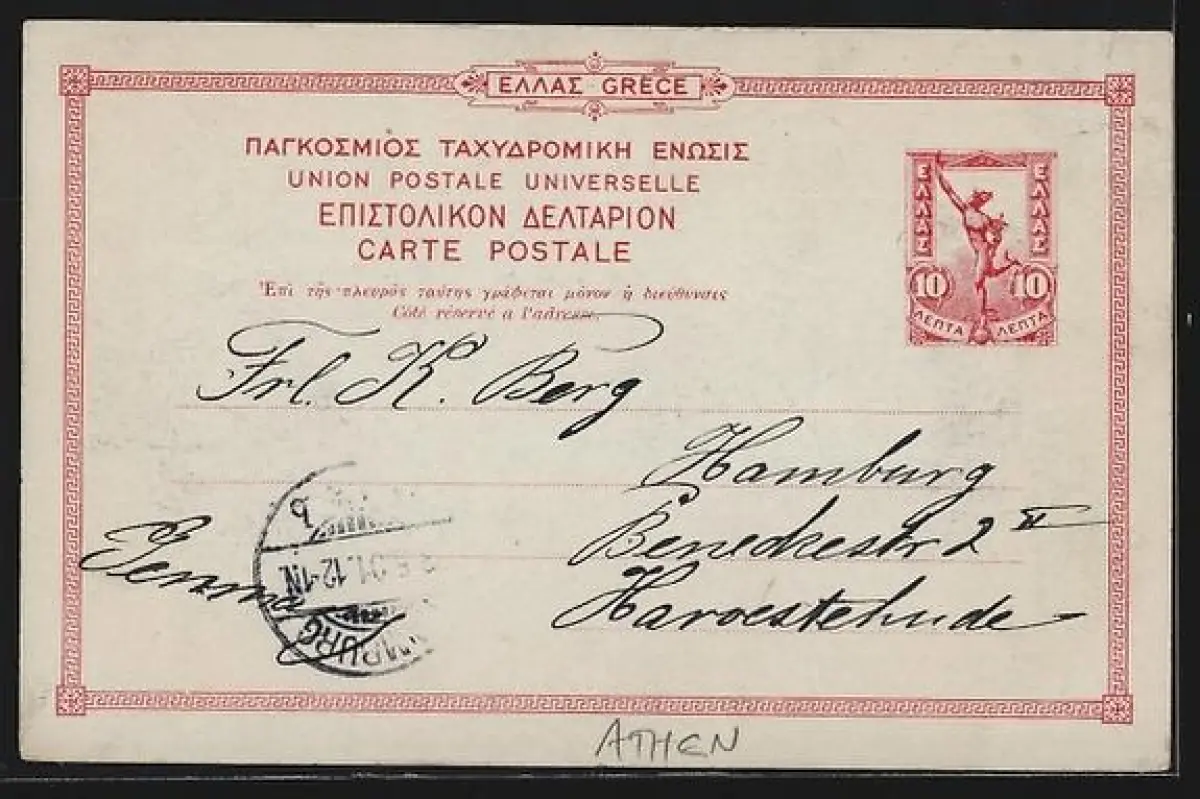 ΕΛΛΑΣ GRÈCE
ΠΑΓΚΟΣΜΙΟΣ ΤΑΧΥΔΡΟΜΙΚΗ ΕΝΩΣΙΣ
UNION POSTALE UNIVERSELLE
ΕΠΙΣΤΟΛΙΚΟΝ ΔΕΛΤΑΡΙΟΝ
CARTE POSTALE
Ἐπὶ τῆς πλευρᾶς ταύτης γράφεται μόνον ἡ διεύθυνσις
Côté réservé a l'adresse.
ΕΛΛΑΣ ΕΛΛΑΣ
10 10
ΛΕΠΤΑ ΛΕΠΤΑ
Frl. K. Berg
Hamburg
Beneckestr 2 II
Harvestehude
12-1N
MBURG
ATHEN